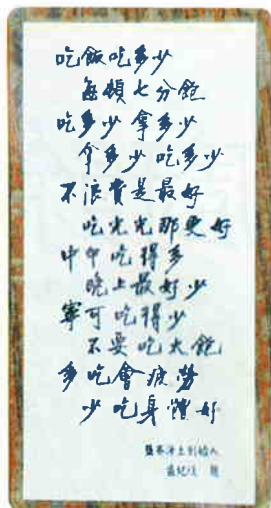 吃飯吃多少
每頓七分飽
吃多少拿多少
拿多少吃多少
不浪費是最好
吃光光那更好
中午吃得多
晚上最好少
寧可吃得少
不要吃太飽
多吃會疲勞
少吃身體好